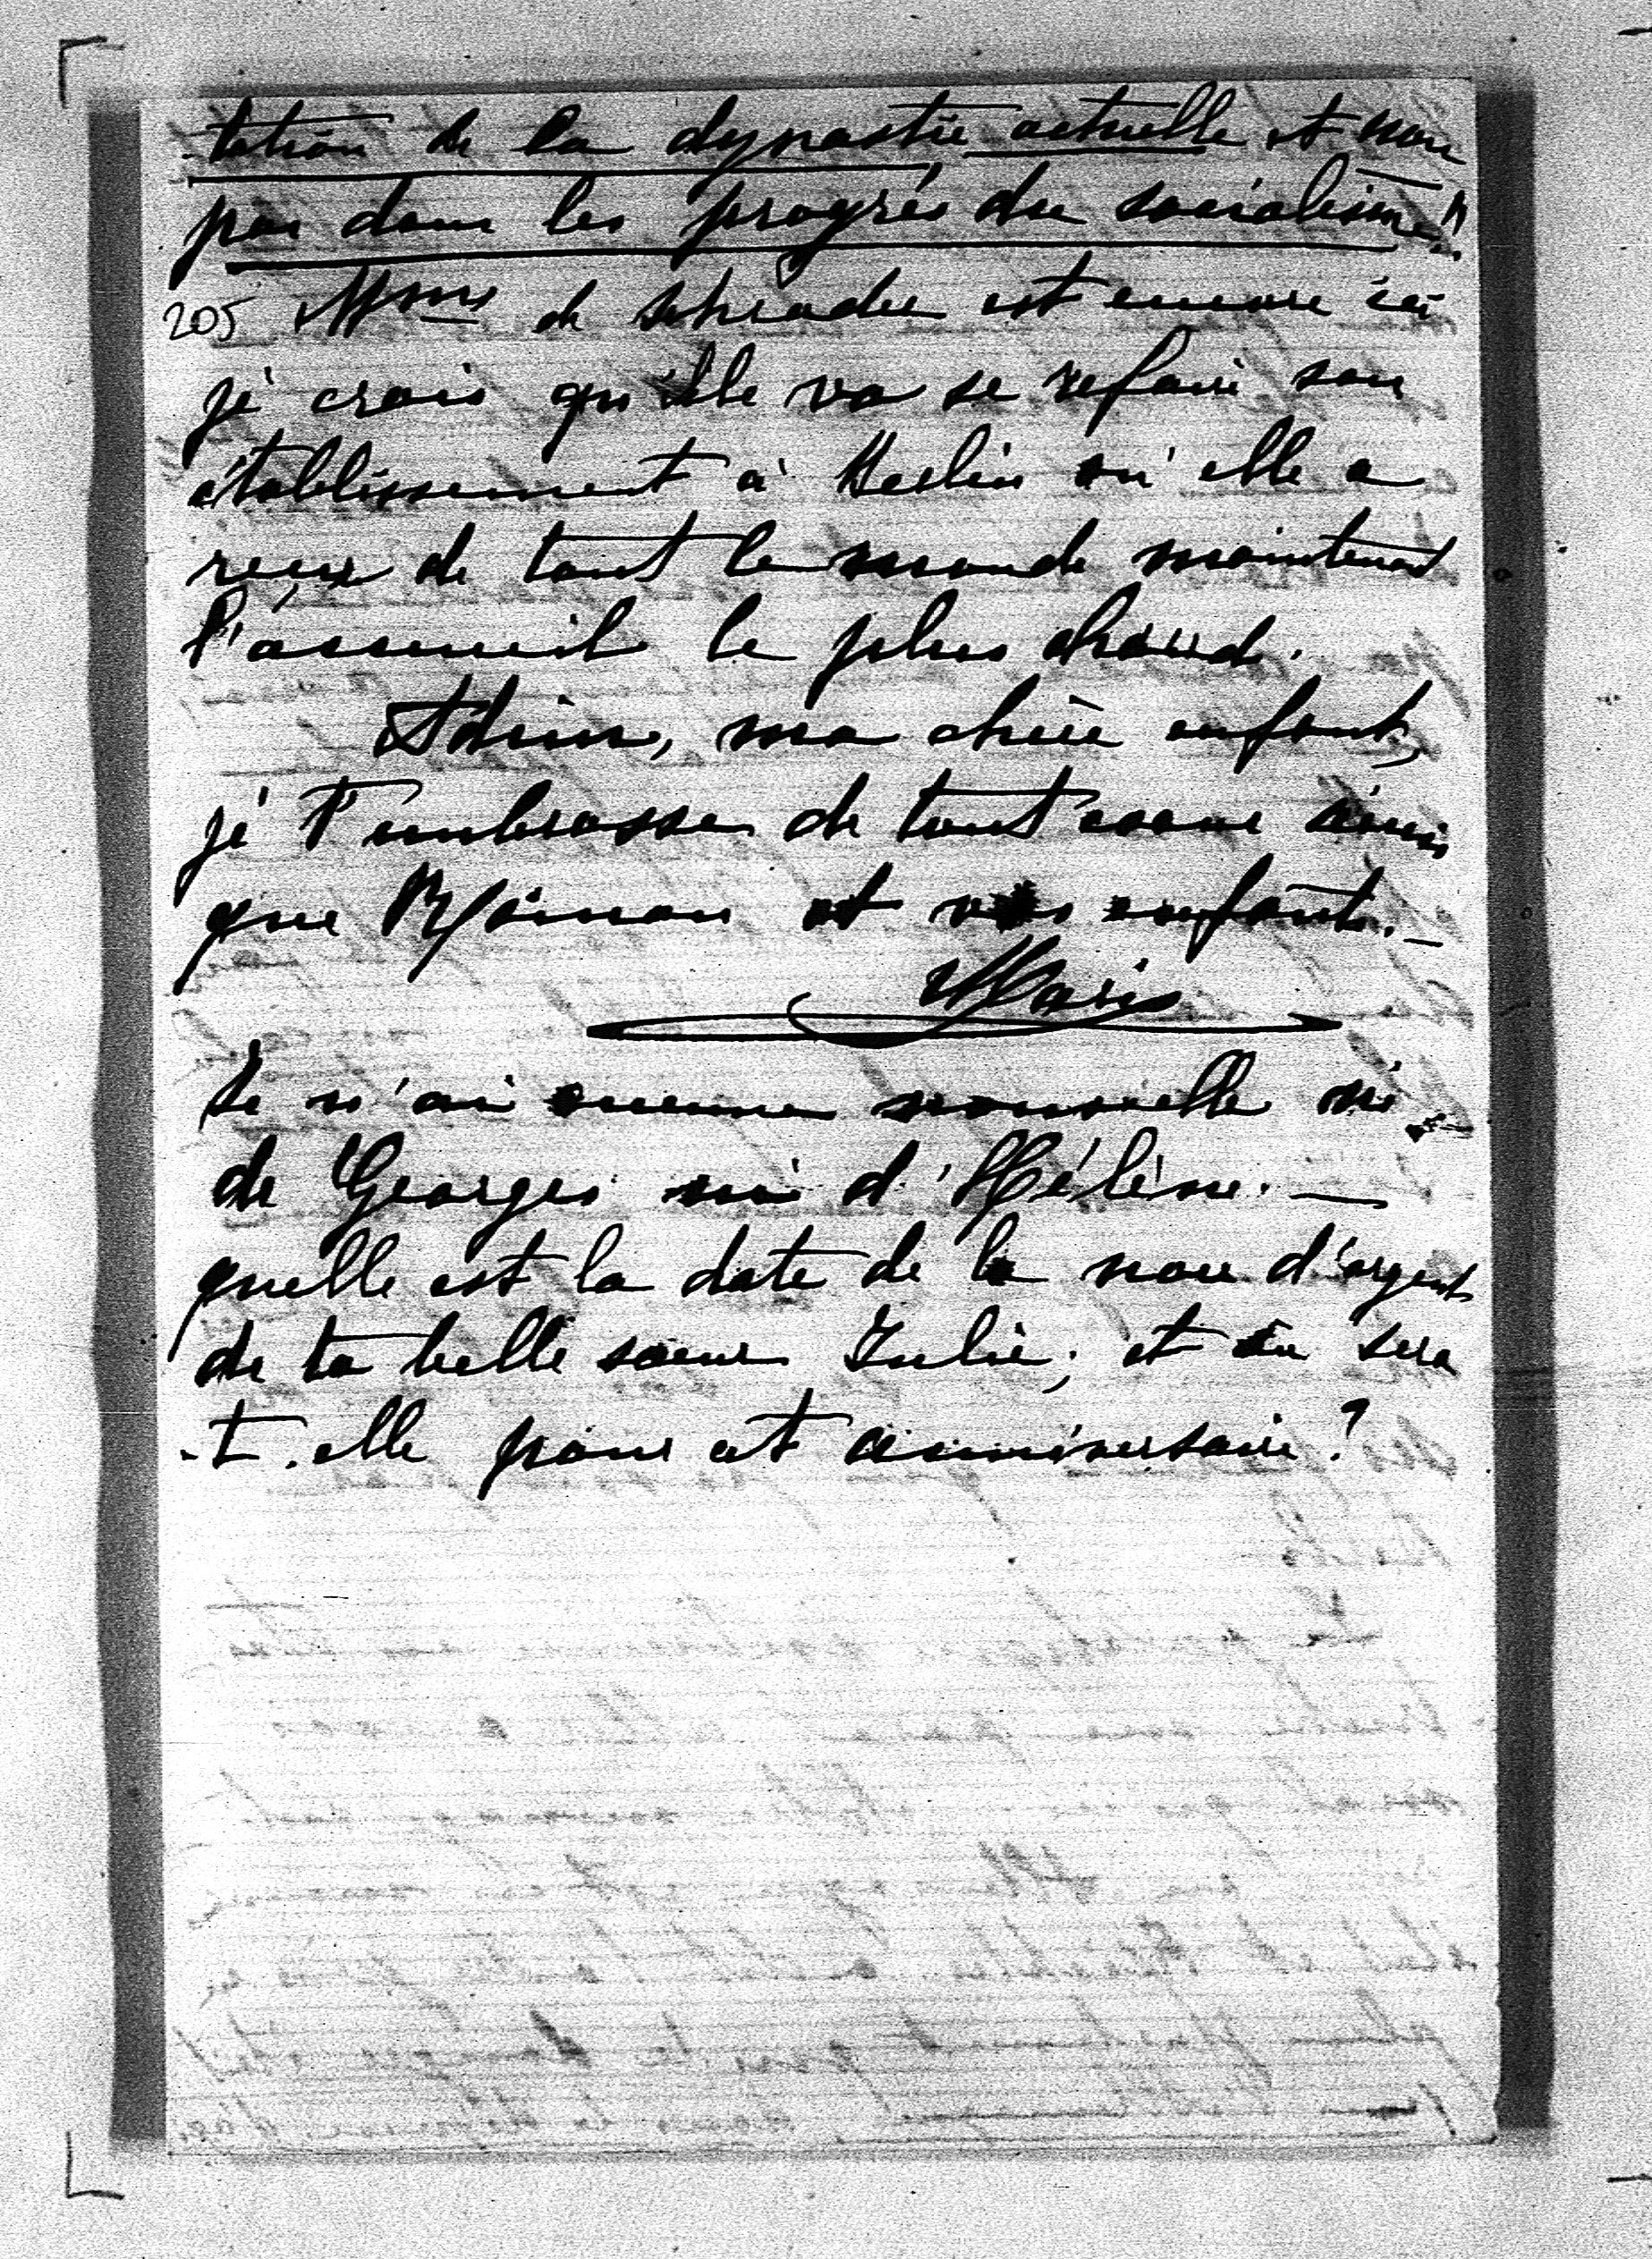 -tation de la dynastie actuelle et non
pas dans les progrès du socialisme!!
205 Mme de Schrader est encore ici
je crois qu'elle va se refaire son
établissement à Berlin où elle a
reçu de tout le monde maintenant
l'accueil le plus chaud.
Adieu, ma chère enfant,
je t'embrasse de tout coeur ainsi
que Maman et vos enfants.
Marie
Je n'ai aucune nouvelle ni
de Georges ni d'Hélène. —
quelle est la date de la noce d'argent
de ta belle soeur Julie; et où sera
-t-elle pour cet anniversaire?